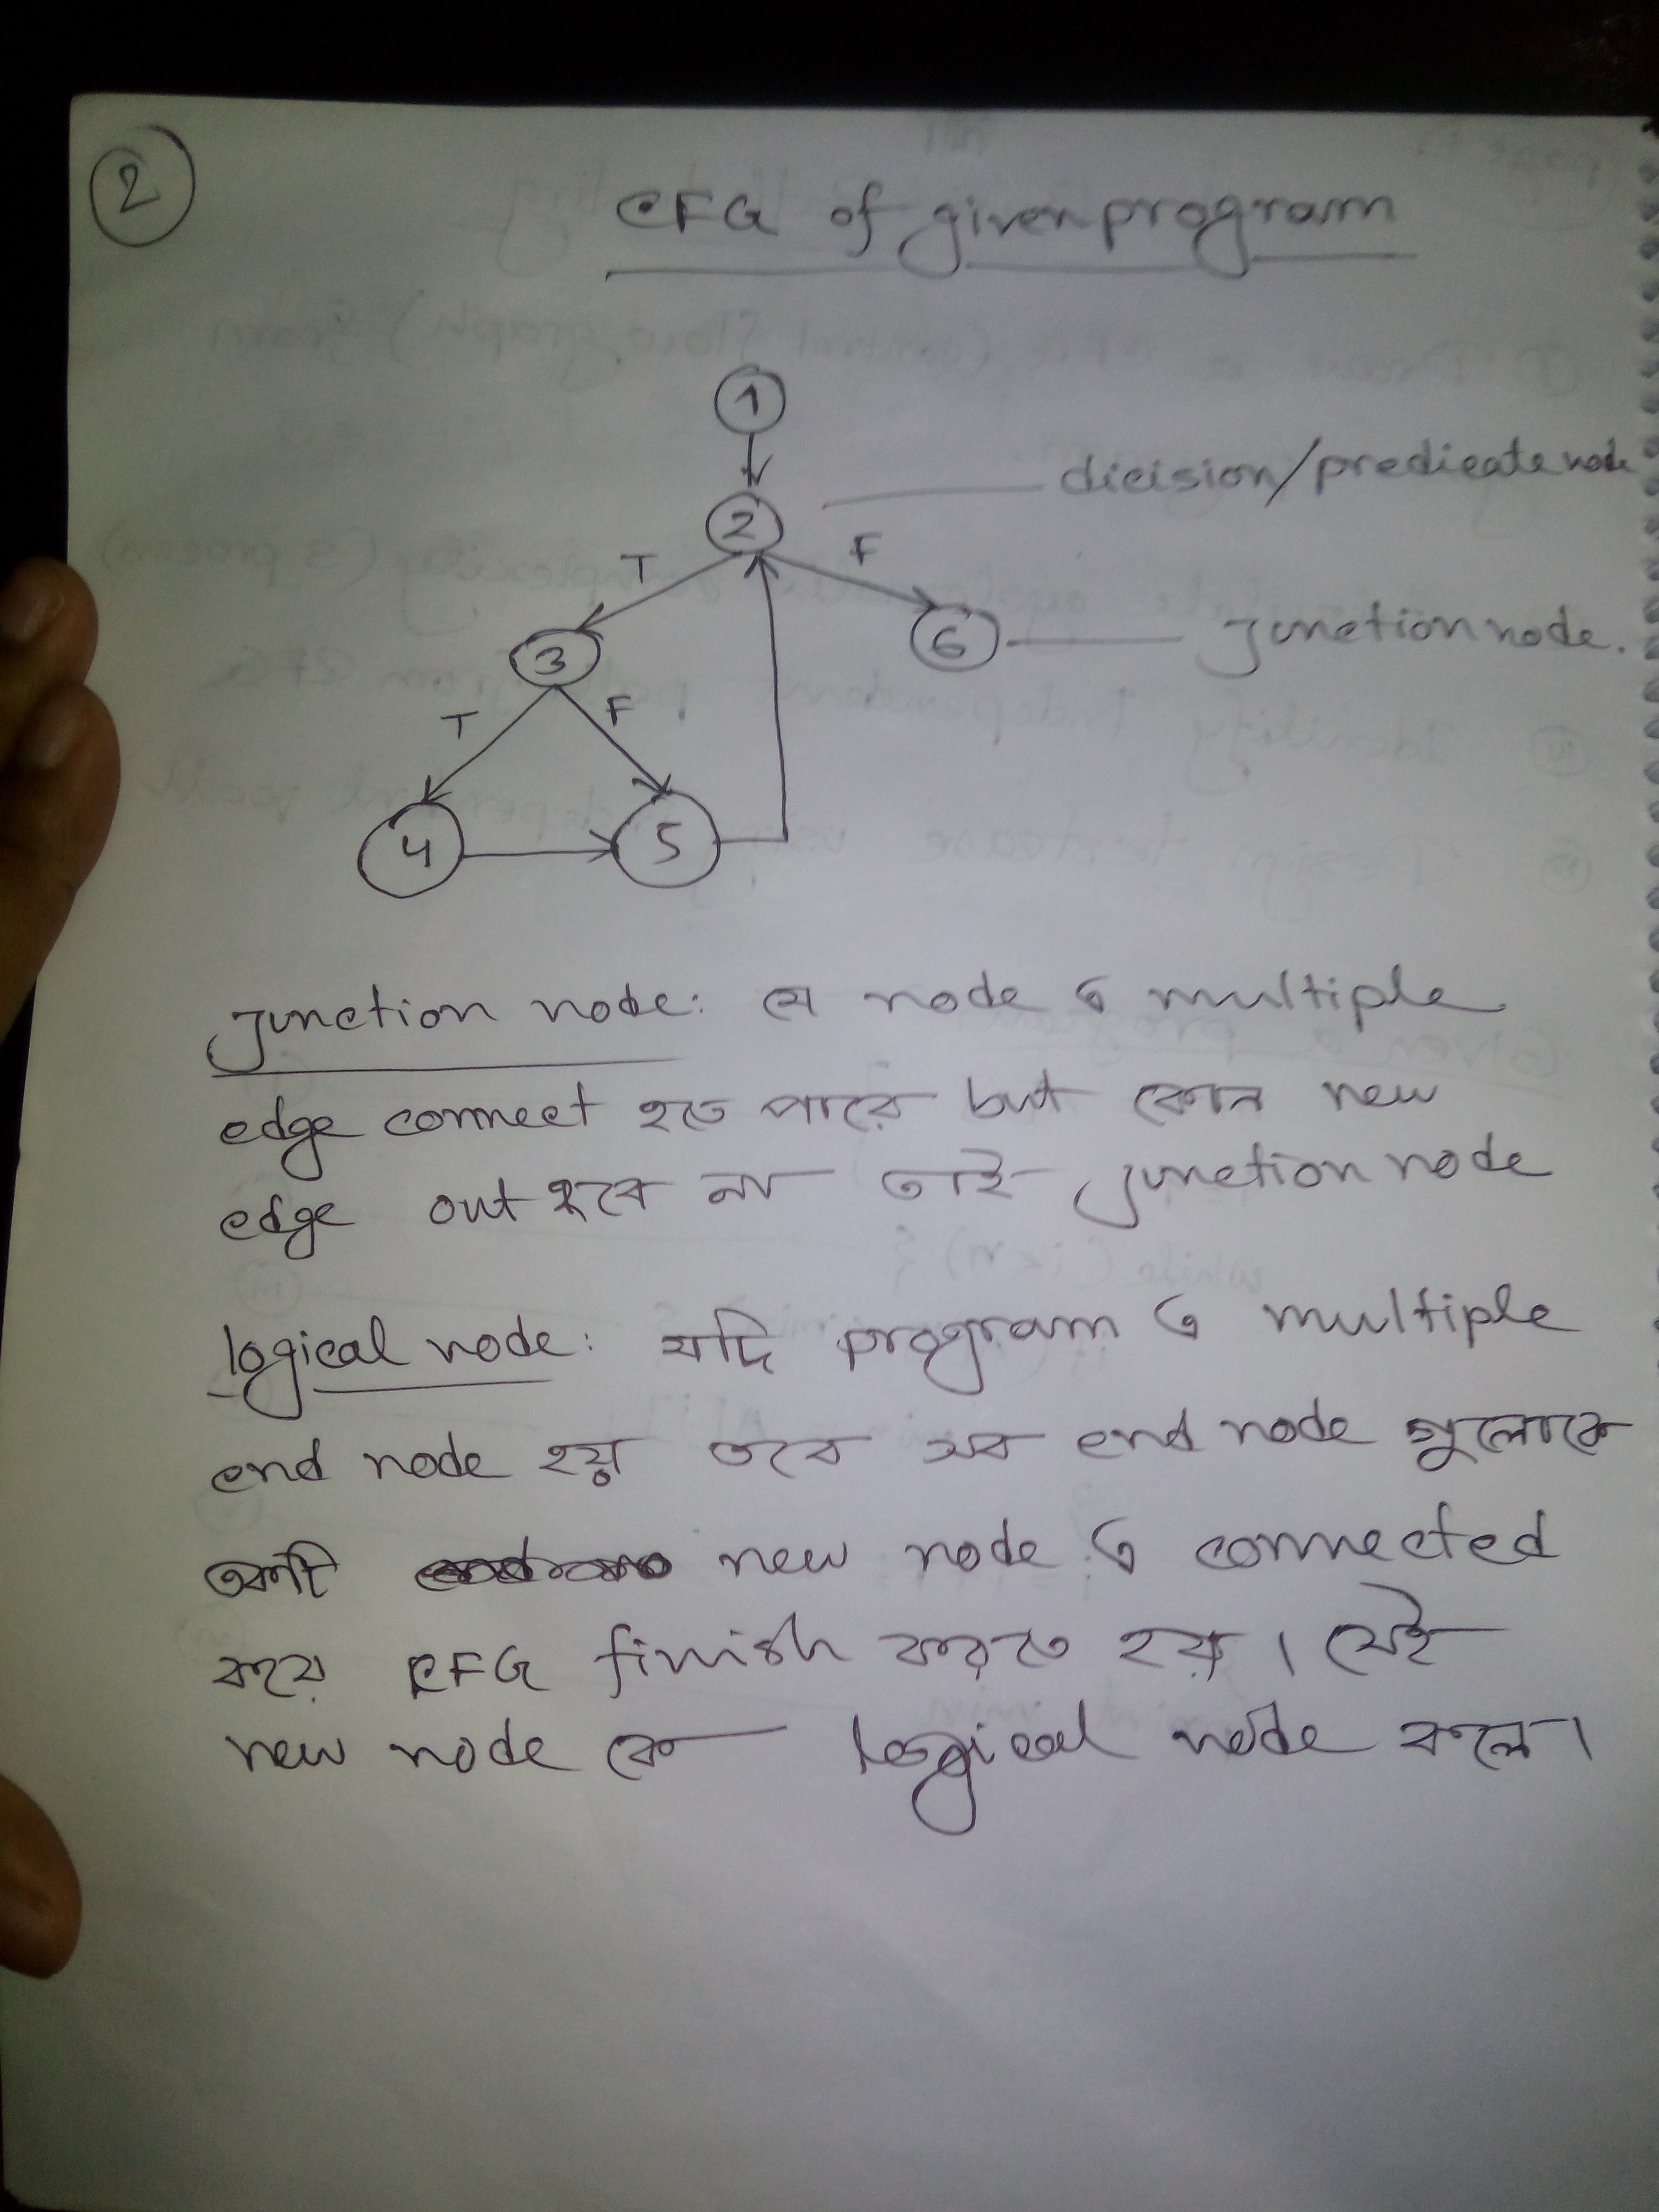 2
CFG of given program
1
2
dicision/predicate node
T
F
3
6
Junction node.
T
F
4
5
Junction node: যে node এ multiple
edge connect হতে পারে but কোন new
edge out হবে না তাই Junction node
logical node: যদি program এ multiple
end node হয় তবে সব end node গুলোকে
একটি new node এ connected
করে CFG finish করতে হয়। সেই
new node কে logical node বলে।